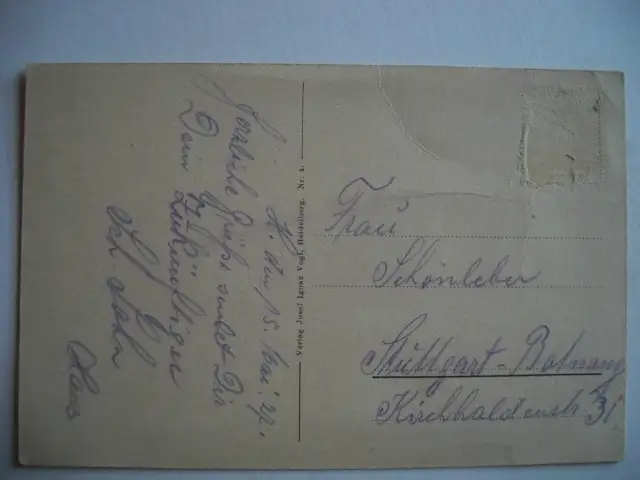 H. den 15. Mai. 27.
Herzliche Grüße sendet Dir
Dein zukünftiger
Sch. Sohn
Hans
Verlag Josef Ignaz Vogt, Heidelberg. Nr. 4.
Frau
Schönleber
Stuttgart-Botnang
Kirchhaldenstr 31